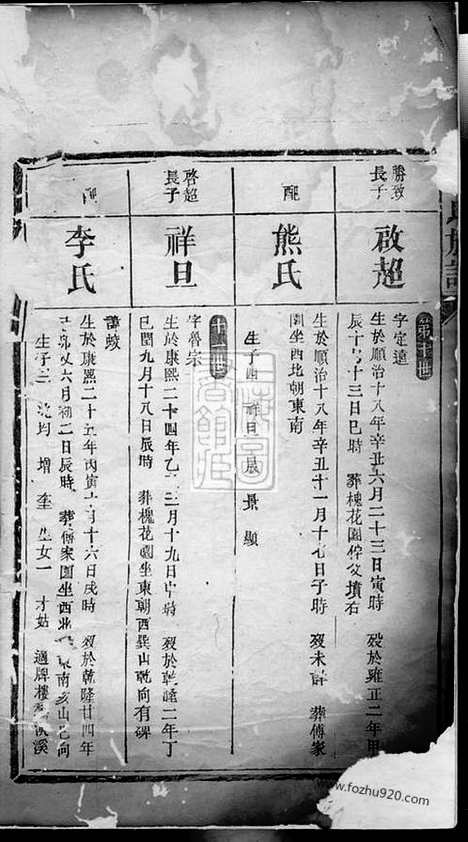 氏族譜
勝致
長子
啟超
第十二世
字定遠
生於順治十八年辛丑六月二十三日寅時 殁於雍正二年甲
辰十月十三日巳時 葬槐花園伴父墳右
配
熊氏
生於順治十八年辛丑十一月十七日子時 殁未詳 葬傅家
園坐西北朝東南
生子四 祥旦 晟 景 顯
啓超
長子
祥旦
字魯宗
生於康熙二十四年乙丑三月十九日申時 殁於乾隆二年丁
巳閏九月十八日辰時 葬槐花園坐東朝西巽山乾向有碑
配
李氏
諱蛟
生於康熙二十五年丙寅 月十六日戌時 殁於乾隆廿四年
己卯又六月初二日辰時 葬傅家園坐西北朝東南亥山巳向
生子三 均 增 奎 生女一 才姑 適牌樓 溪
www.fozhu920.com